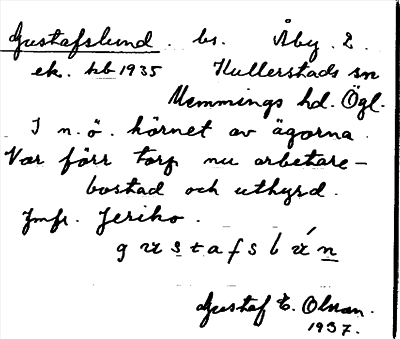 Gustafslund. bs. Åby. 2.
ek. kb 1935 Kullerstads sn
Memmings hd. Ögl.
I n. ö. hörnet av ägorna.
Var förr torp nu arbetare-
bostad och uthyrd.
Jmfr. Jeriko.
Gustaf E. Olsson.
1937.